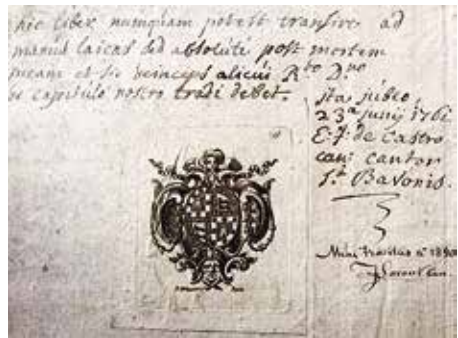 hic liber numquam potest transire ad
manus laicas sed absolutè post mortem
meam et sic deinceps alicui R.to D.no
de capitulo nostro tradi debet.
ita jubeo
23.a junij 176
E. J. de Castro
can: cantor
S.ti Bavonis.